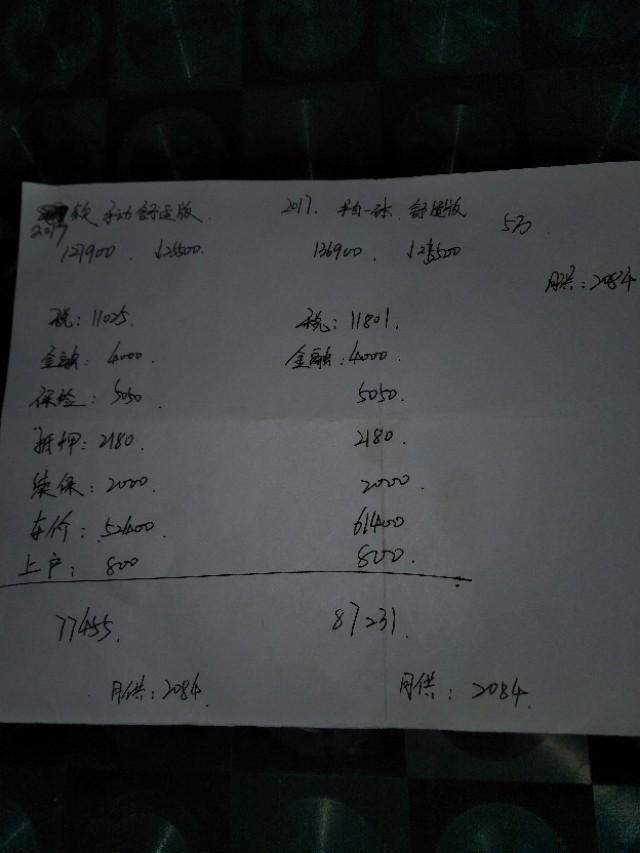 2017款 手动舒适版. 2017. 手自一体 舒适版
5万.
127900. ↓25500. 136900. ↓25500
月供: 2084
税: 11025. 税: 11801.
金融: 4000. 金融: 4000.
保险: 5050. 5050.
抵押: 2180. 2180.
续保: 2000. 2000.
车价: 52400. 61400
上户: 800 800.
77455. 87231.
月供: 2084. 月供: 2084.